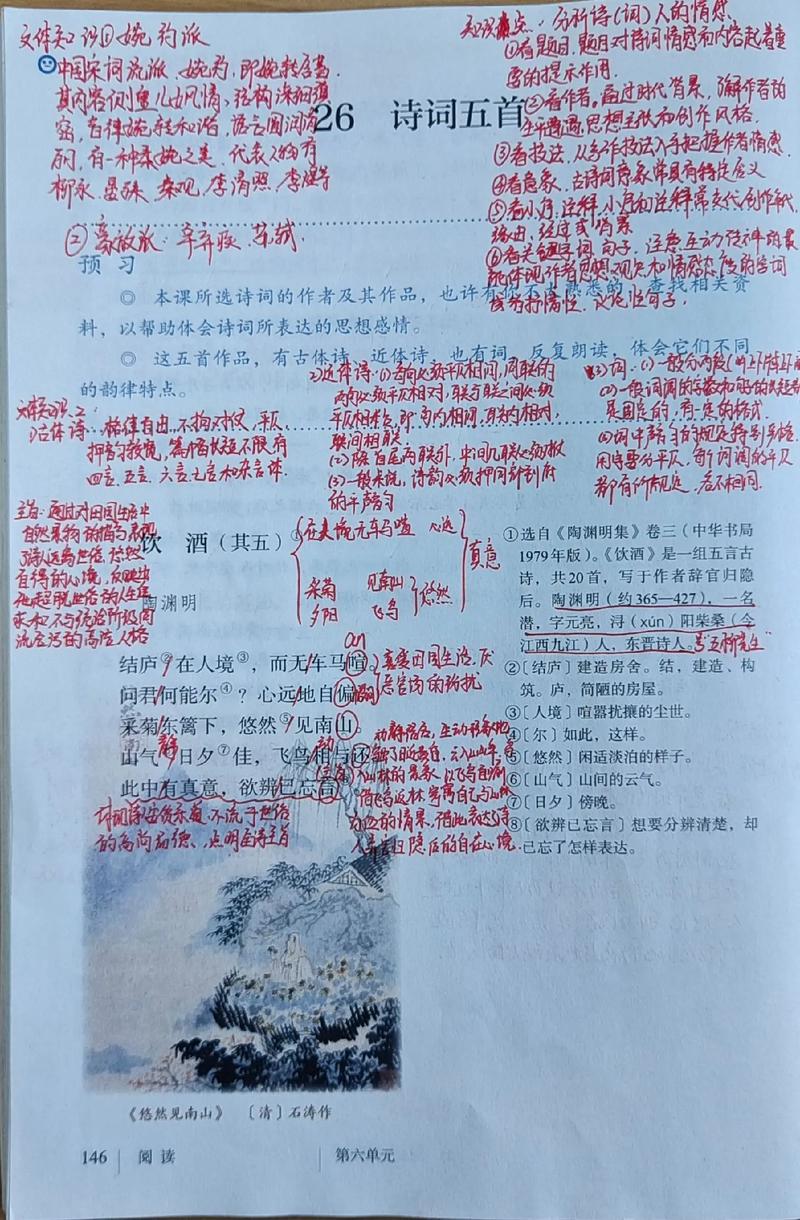 文体知识①婉约派
中国宋词流派。婉约,即婉转含蓄.
其内容侧重儿女风情,结构深细缜
密,音律婉转和谐,语言圆润清
丽,有一种柔婉之美.代表人物有
柳永、晏殊、秦观、李清照、李煜等
②豪放派:辛弃疾、苏轼.
知识点:分析诗(词)人的情感
①看题目,题目对诗词情感和内容起着重
要的提示作用.
②看作者。通过时代背景,了解作者的
生平遭遇、思想主张和创作风格.
③看技法,从写作技法入手把握作者情感.
④看意象,古诗词意象常具有特定含义
⑤看小序、注释,小序和注释常交代创作年代、
缘由、经过或背景
⑥看关键字词、句子,注意
能体现作者思想观点和情感态度的
或为抒情性、议论性句子.
26 诗词五首
预 习
◎ 本课所选诗词的作者及其作品,也许有你不太熟悉的,查找相关资
料,以帮助体会诗词所表达的思想感情。
◎ 这五首作品,有古体诗、近体诗,也有词,反复朗读,体会它们不同
的韵律特点。
古体诗:格律自由,不拘对仗、平仄,
押韵较宽,篇幅长短不限,有
四言、五言、六言、七言和杂言体.
近体诗:(1)句内必须平仄相间,同联的
两句必须平仄相对,联与联之间必须
平仄相粘,即句内相间,联内相对,
联间相联
(2)除首尾两联外,中间几联必须对仗
(3)一般来说,诗韵必须押同部到底
的平声韵
词:(1)一般分两段
(2)一般词调的字数和句子的长短都
是固定的,有一定的格式.
(3)词中声韵的规定特别严格,
用字要分平仄,每个词调的平仄
都有所规定,各不相同.
主旨:通过对田园生活中
自然景物的描写,表现
了诗人远离世俗,悠然
自得的心境,反映出
他超脱世俗的人生追
求和不与统治阶级同
流合污的高洁人格
饮 酒(其五)①
陶渊明
无车马喧 心远
采菊 见南山
夕阳 飞鸟
悠然
真意
结庐②在人境③,而无车马喧。
问君何能尔④?心远地自偏。
采菊东篱下,悠然⑤见南山。
山气⑥日夕⑦佳,飞鸟相与还。
此中有真意,欲辨已忘言⑧。
an
静
动
喜爱田园生活,厌
恶官场的纷扰
诗词
的高尚品德、点明全诗主旨
①选自《陶渊明集》卷三(中华书局
1979年版)。《饮酒》是一组五言古
诗,共20首,写于作者辞官归隐
后。陶渊明(约365—427),一名
潜,字元亮,浔(xún)阳柴桑(今
江西九江)人,东晋诗人。号“五柳先生”
②〔结庐〕建造房舍。结,建造、构
筑。庐,简陋的房屋。
③〔人境〕喧嚣扰攘的尘世。
④〔尔〕如此,这样。
⑤〔悠然〕闲适淡泊的样子。
⑥〔山气〕山间的云气。
⑦〔日夕〕傍晚。
⑧〔欲辨已忘言〕想要分辨清楚,却
已忘了怎样表达。
《悠然见南山》 〔清〕石涛作
146 阅 读 第六单元